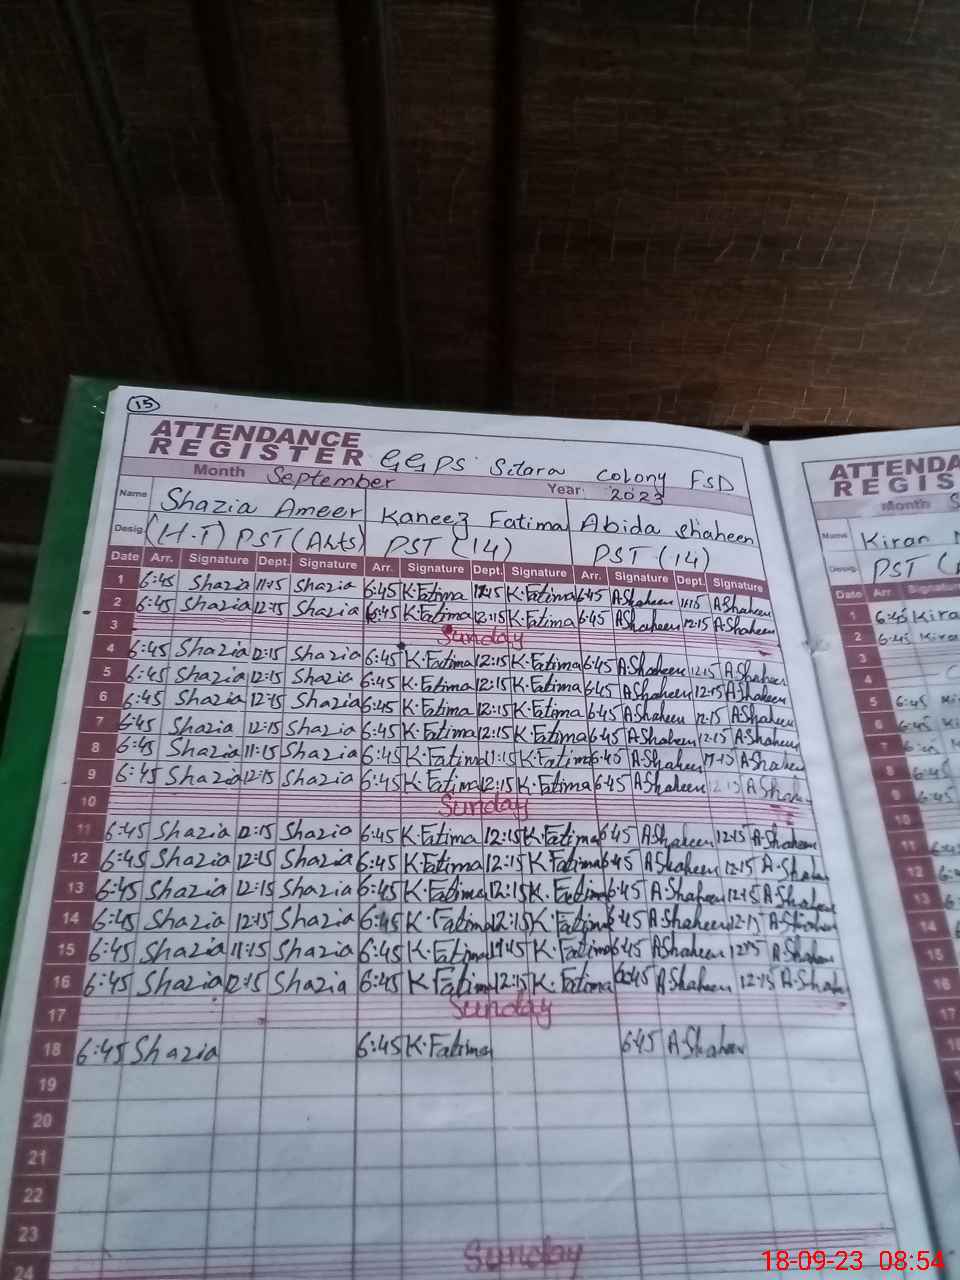 15
ATTENDANCE
REGISTER GGPS Sitara Colony FSD
Month September Year: 2023
Name Shazia Ameer Kaneez Fatima Abida Shaheen
Desig. (H.T) PST (Arts) PST (14) PST (14)
Date Arr. Signature Dept. Signature Arr. Signature Dept. Signature Arr. Signature Dept. Signature
1 6:45 Shazia 11:15 Shazia 6:45 K.Fatima K.Fatima 6:45 A.Shaheen 11:15 A.Shaheen
2 6:45 Shazia 12:15 Shazia 6:45 K.Fatima 12:15 K.Fatima 6:45 A.Shaheen 12:15 A.Shaheen
3 Sunday
4 6:45 Shazia 12:15 Shazia 6:45 K.Fatima 12:15 K.Fatima 6:45 A.Shaheen 12:15 A.Shaheen
5 6:45 Shazia 12:15 Shazia 6:45 K.Fatima 12:15 K.Fatima 6:45 A.Shaheen 12:15 A.Shaheen
6 6:45 Shazia 12:15 Shazia 6:45 K.Fatima 12:15 K.Fatima 6:45 A.Shaheen 12:15 A.Shaheen
7 6:45 Shazia 12:15 Shazia 6:45 K.Fatima 12:15 K.Fatima 6:45 A.Shaheen 12:15 A.Shaheen
8 6:45 Shazia 11:15 Shazia 6:45 K.Fatima 11:15 K.Fatima 6:45 A.Shaheen A.Shaheen
9 6:45 Shazia 12:15 Shazia 6:45 K.Fatima 12:15 K.Fatima 6:45 A.Shaheen 12:15 A.Shaheen
10 Sunday
11 6:45 Shazia 12:15 Shazia 6:45 K.Fatima 12:15 K.Fatima 6:45 A.Shaheen 12:15 A.Shaheen
12 6:45 Shazia 12:15 Shazia 6:45 K.Fatima 12:15 K.Fatima 6:45 A.Shaheen 12:15 A.Shaheen
13 6:45 Shazia 12:15 Shazia 6:45 K.Fatima 12:15 K.Fatima 6:45 A.Shaheen 12:15 A.Shaheen
14 6:45 Shazia 12:15 Shazia 6:45 K.Fatima 12:15 K.Fatima 6:45 A.Shaheen 12:15 A.Shaheen
15 6:45 Shazia 11:15 Shazia 6:45 K.Fatima K.Fatima 6:45 A.Shaheen A.Shaheen
16 6:45 Shazia 12:15 Shazia 6:45 K.Fatima 12:15 K.Fatima 6:45 A.Shaheen 12:15 A.Shaheen
17 Sunday
18 6:45 Shazia 6:45 K.Fatima 6:45 A.Shaheen
19
20
21
22
23
24 Sunday
ATTENDA
REGIS
Month S
Name Kiran
Desig. PST
Date Arr. Signature
1 6:45 Kira
2 6:45 Kira
3
4
5 6:45
6 6:45
7
8 6:45
9 6:45
10
11
12
13
14
15
16
17
18
18-09-23 08:54